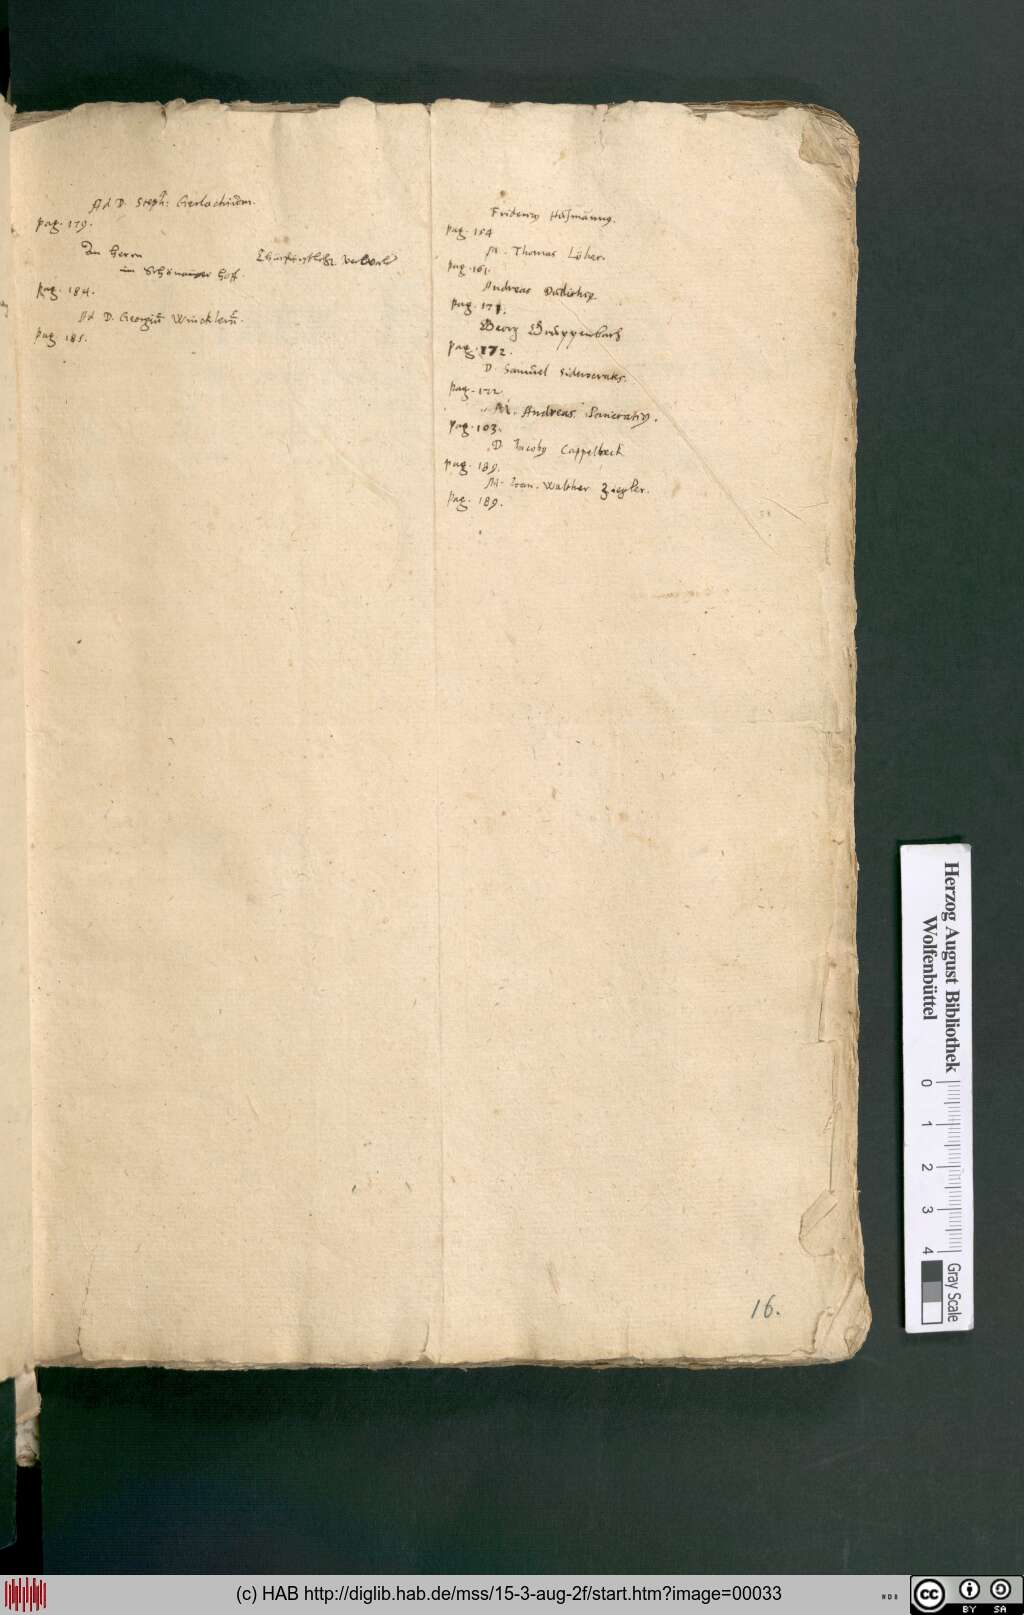 Ad D. Steph: Gerlachium.
pag. 179.
An Herrn
im Schönauer Hoff.
pag. 184.
Ad D. Georgiū Wincklerū.
pag 185.
Fridericus Husmannus.
pag. 154
M. Thomas Löher.
pag. 161.
Andreas Dudithius
pag. 171.
Georg Gruppenbach
pag. 172.
D. Samuel Siderocrates.
pag. 172
M. Andreas Pancratius.
pag. 103.
D. Jacobus Cappelbeck
pag. 189.
M. Joan. Walther Ziegler.
pag. 189.
16.
Herzog August Bibliothek
Wolfenbüttel
0 1 2 3 4
Gray Scale
(c) HAB http://diglib.hab.de/mss/15-3-aug-2f/start.htm?image=00033
cc BY SA